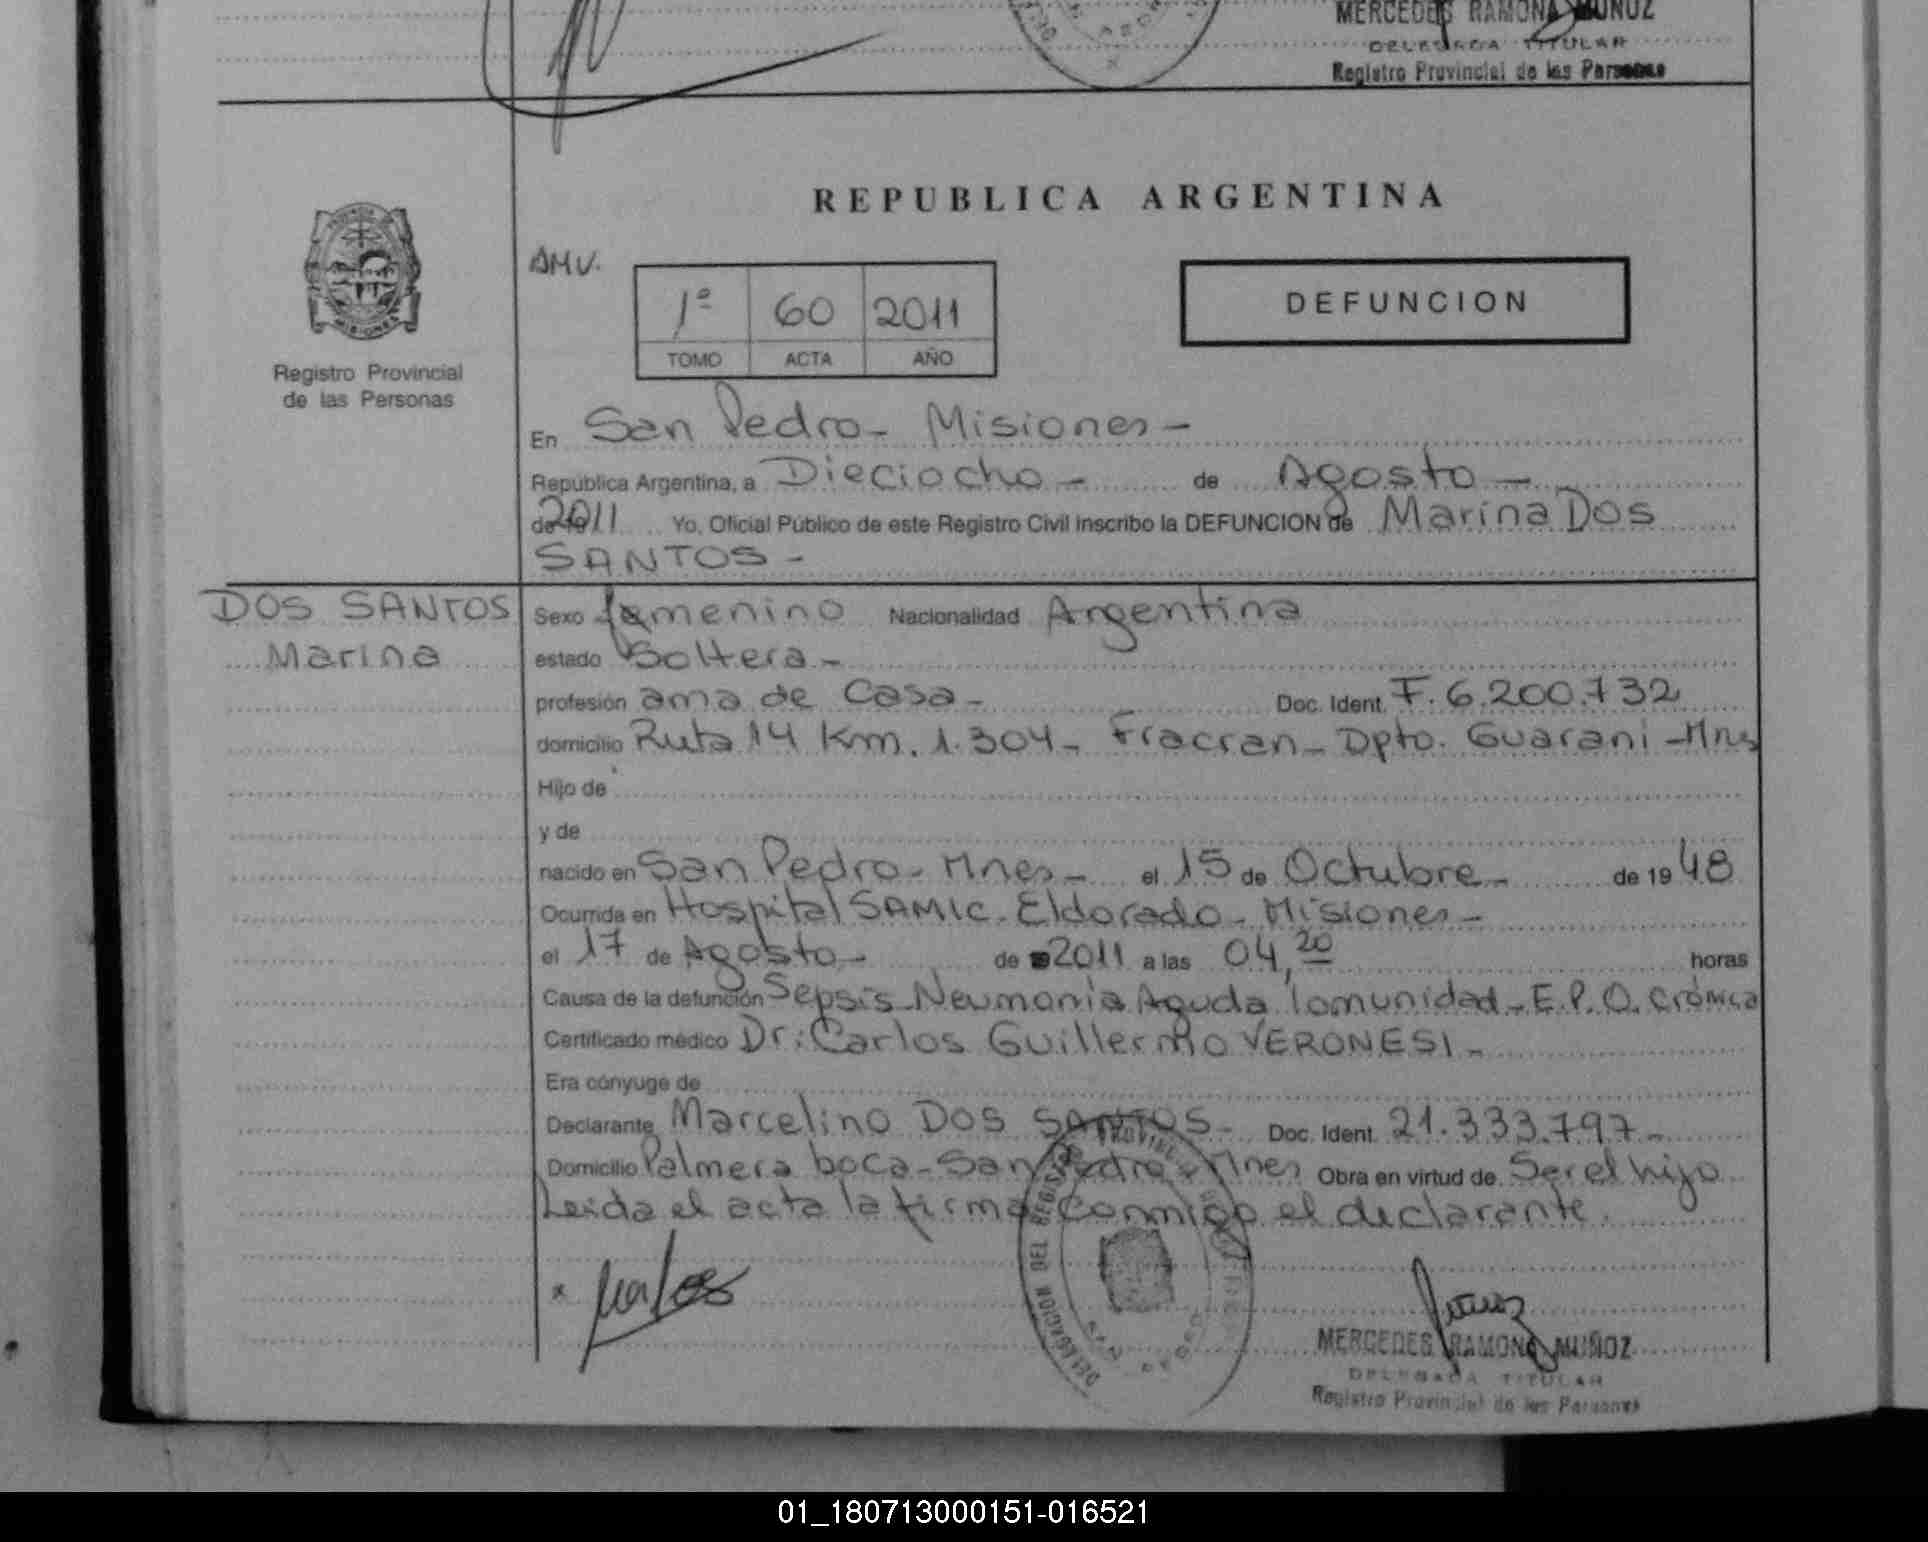 MERCEDES RAMONA MUÑOZ
DELEGADA TITULAR
Registro Provincial de las Personas
REPUBLICA ARGENTINA
MISIONES
Registro Provincial
de las Personas
AMV.
1º 60 2011
TOMO ACTA AÑO
DEFUNCION
En San Pedro - Misiones -
República Argentina, a Dieciocho - de Agosto -
de 2011 Yo, Oficial Público de este Registro Civil inscribo la DEFUNCION de Marina Dos
SANTOS -
DOS SANTOS
Marina
Sexo femenino Nacionalidad Argentina
estado Soltera -
profesión ama de Casa - Doc. Ident. F. 6.200.732
domicilio Ruta 14 Km. 1.304 - Fracran - Dpto. Guarani - Mnes
Hijo de
y de
nacido en San Pedro - Mnes - el 15 de Octubre - de 19 48
Ocurrida en Hospital SAMIC - Eldorado - Misiones -
el 17 de Agosto - de 2011 a las 04,20 horas
Causa de la defunción Sepsis - Neumonia Aguda Comunidad - E.P.O. Crónica
Certificado médico Dr: Carlos Guillermo VERONESI -
Era cónyuge de
Declarante Marcelino DOS SANTOS - Doc. Ident. 21.333.797 -
Domicilio Palmera boca - San Pedro - Mnes Obra en virtud de Ser el hijo
Leida el acta la firma conmigo el declarante.
x
DELEGACION DEL REGISTRO PROVINCIAL DE LAS PERSONAS
SAN PEDRO
MERCEDES RAMONA MUÑOZ
DELEGADA TITULAR
Registro Provincial de las Personas
01_180713000151-016521